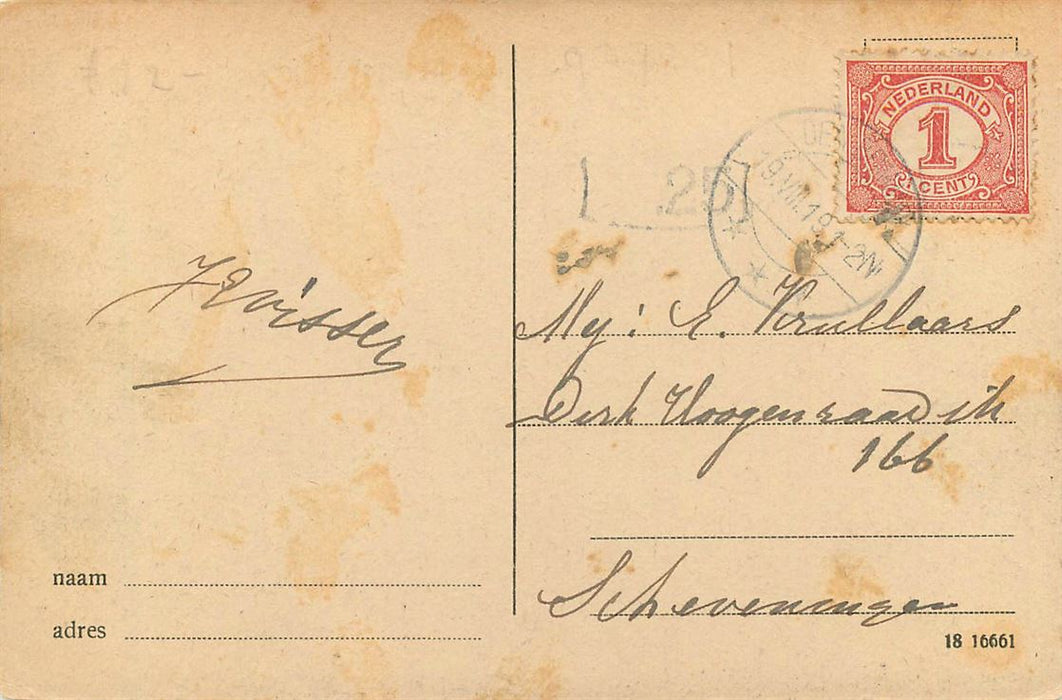 NEDERLAND
1
CENT
25
JE Visser
Mej: E. Krullaars
Dirk Hoogenraad str
166
Scheveningen
naam
adres
18 16661